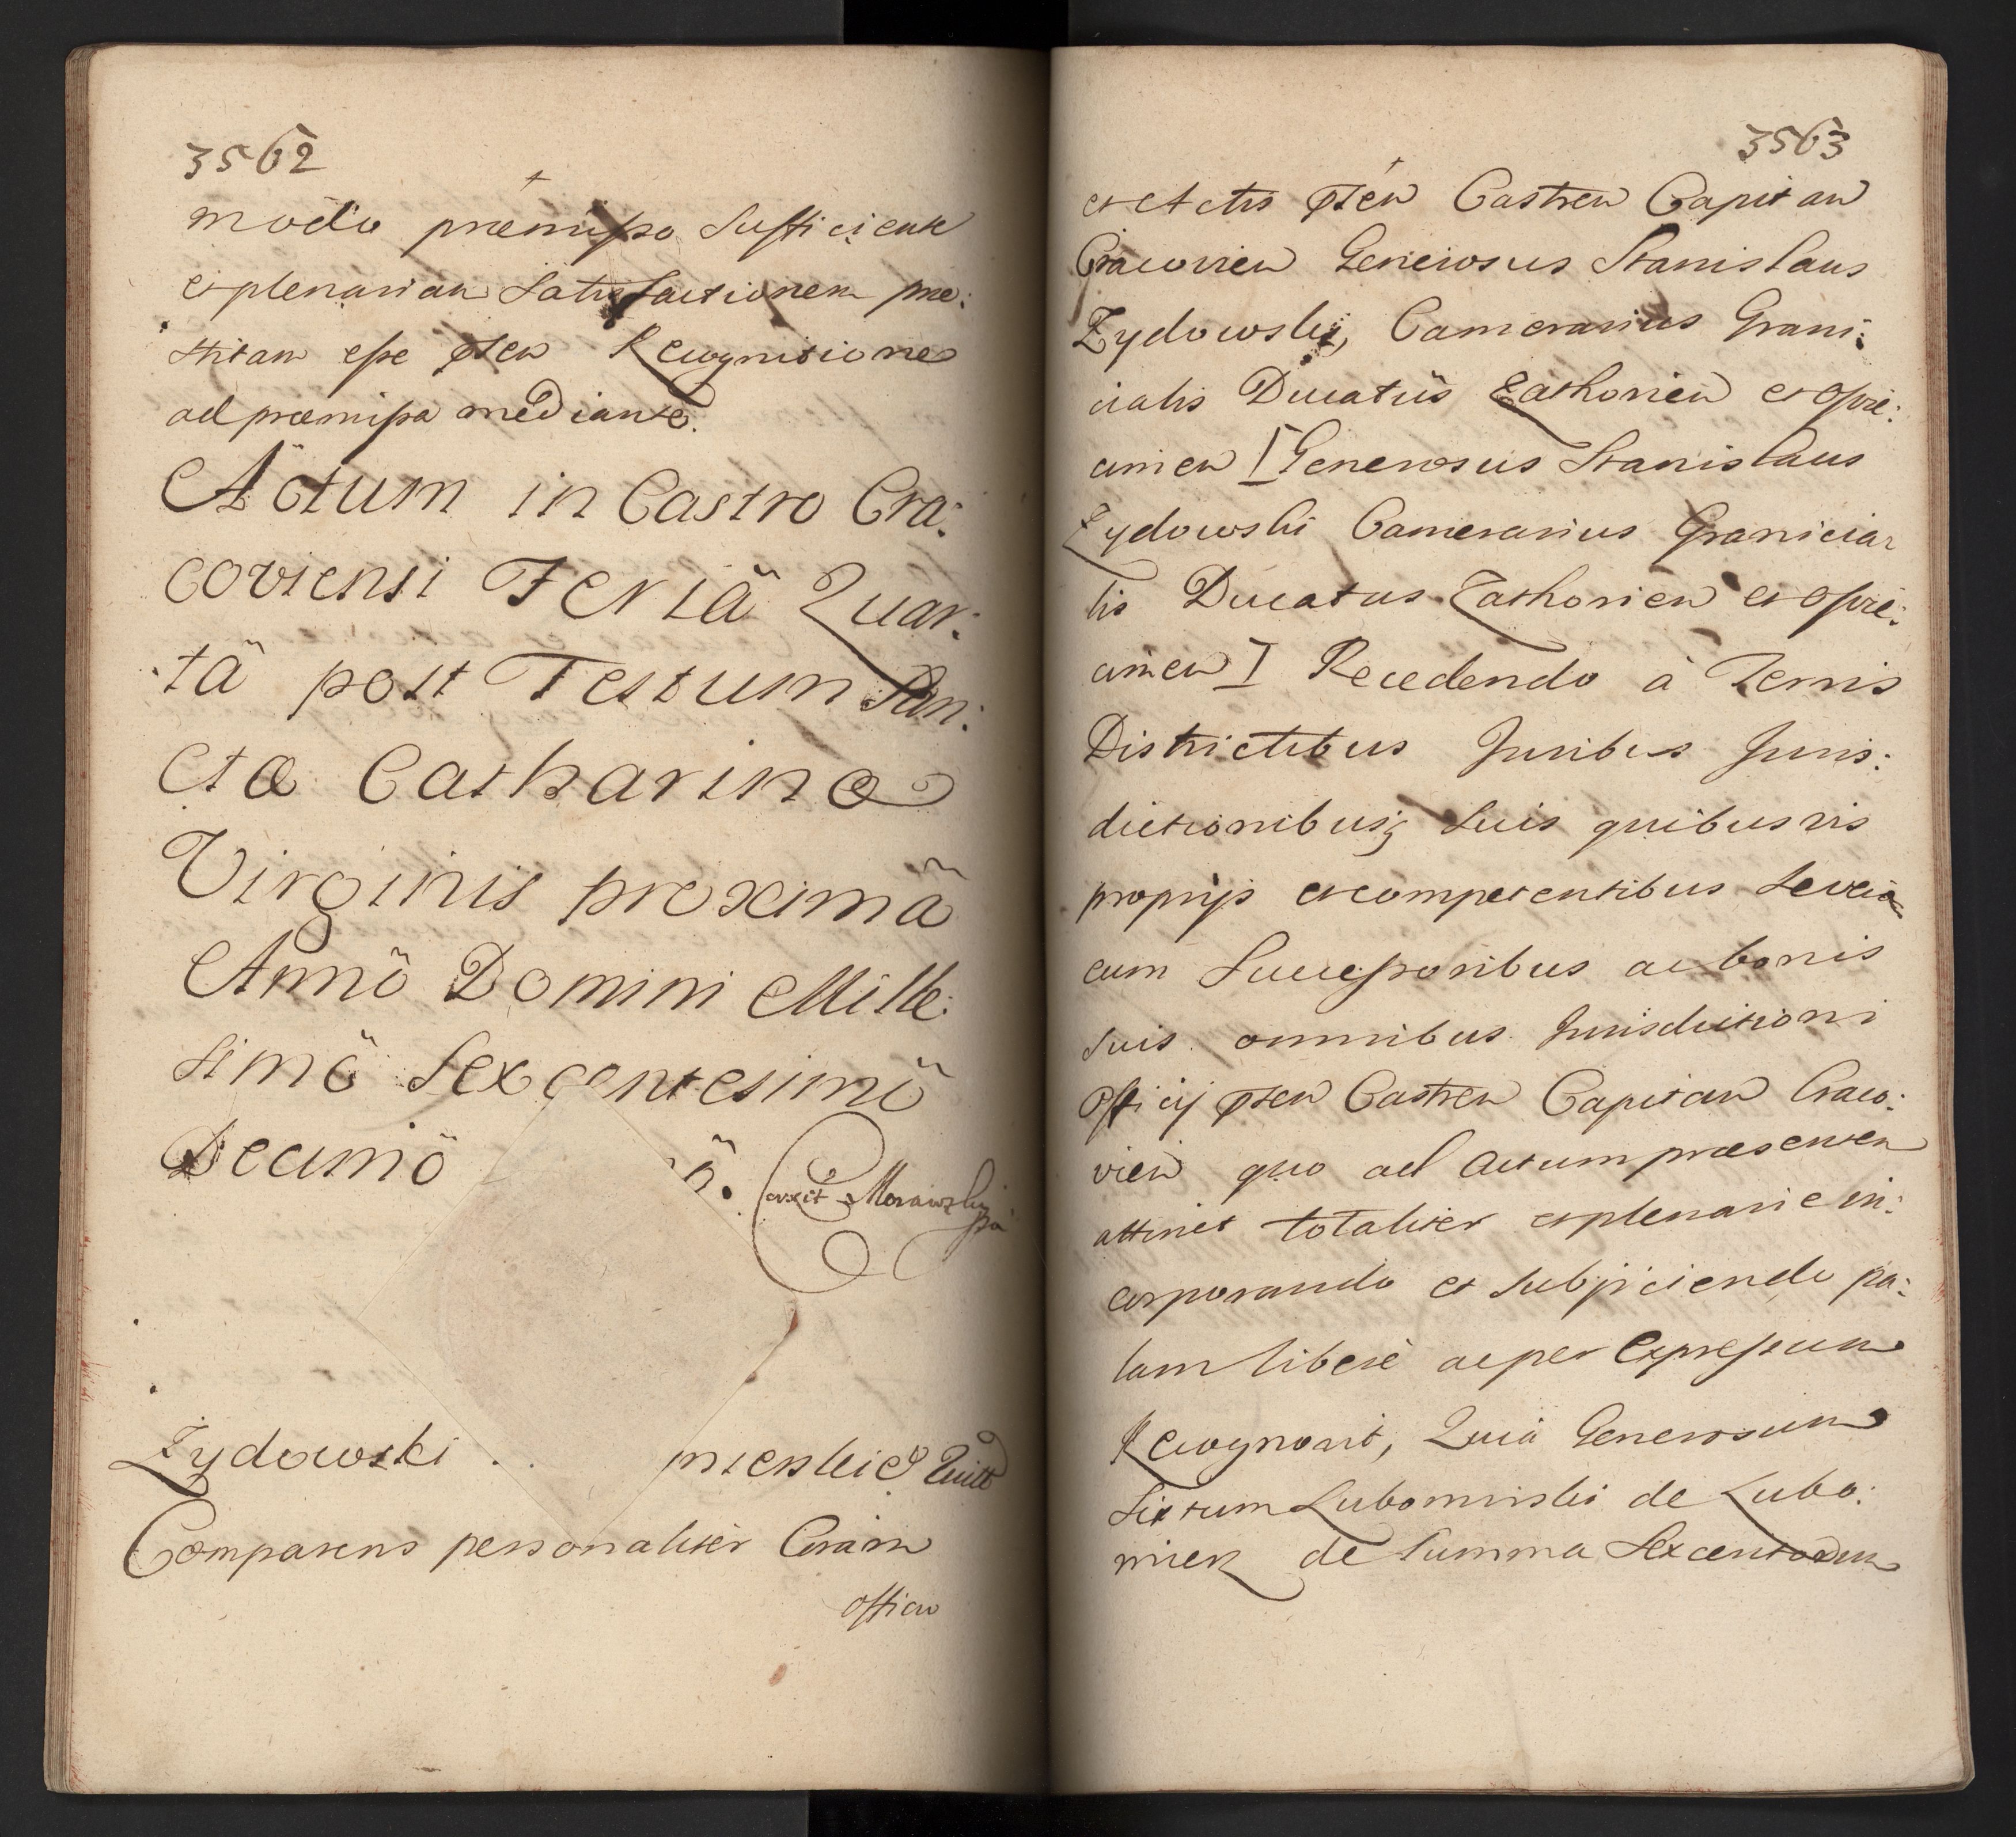 3562
modo præmisso Sufficiente
et plenariam Satisfactionem præ:
stitam esse pnten Recognitione
ad præmissa mediante.
Actum in Castro Cra:
coviensi Feriâ Quar:
tâ post Festum San:
ctæ Catharinæ
Virginis proximâ
Annô Domini Mille:
simô Sexcentesimô
Decimô ô.
Morawski
Zydowski mienskiego Quitt
Comparens personaliter Coram
officio
3563
et Actis pnten Castren Capitan
Cracovien Generosus Stanislaus
Zydowski, Camerarius Grani:
cialis Ducatûs Zathorien et Osvie:
cimen I Generosus Stanislaus
Zydowski Camerarius Granicia
lis Ducatus Zathorien et Osvie:
cimen I Recedendo à Terris
Districtibus Juribus Juris:
dictionibusq; Suis quibusvis
proprijs et competentibus Seveq
cum Successoribus ac bonis
Suis omnibus Jurisdictioni
Officij pnten Castren Capitan Craco:
vien quo ad Actum præsentem
attinet totaliter et plenarie in:
corporando et Subjiciendo pa:
lam liberè ac per Expressum
Recognovit, Quia Generosum
Sixtum Lubomirski de Lubo:
mierz de Summa Sexcentorum